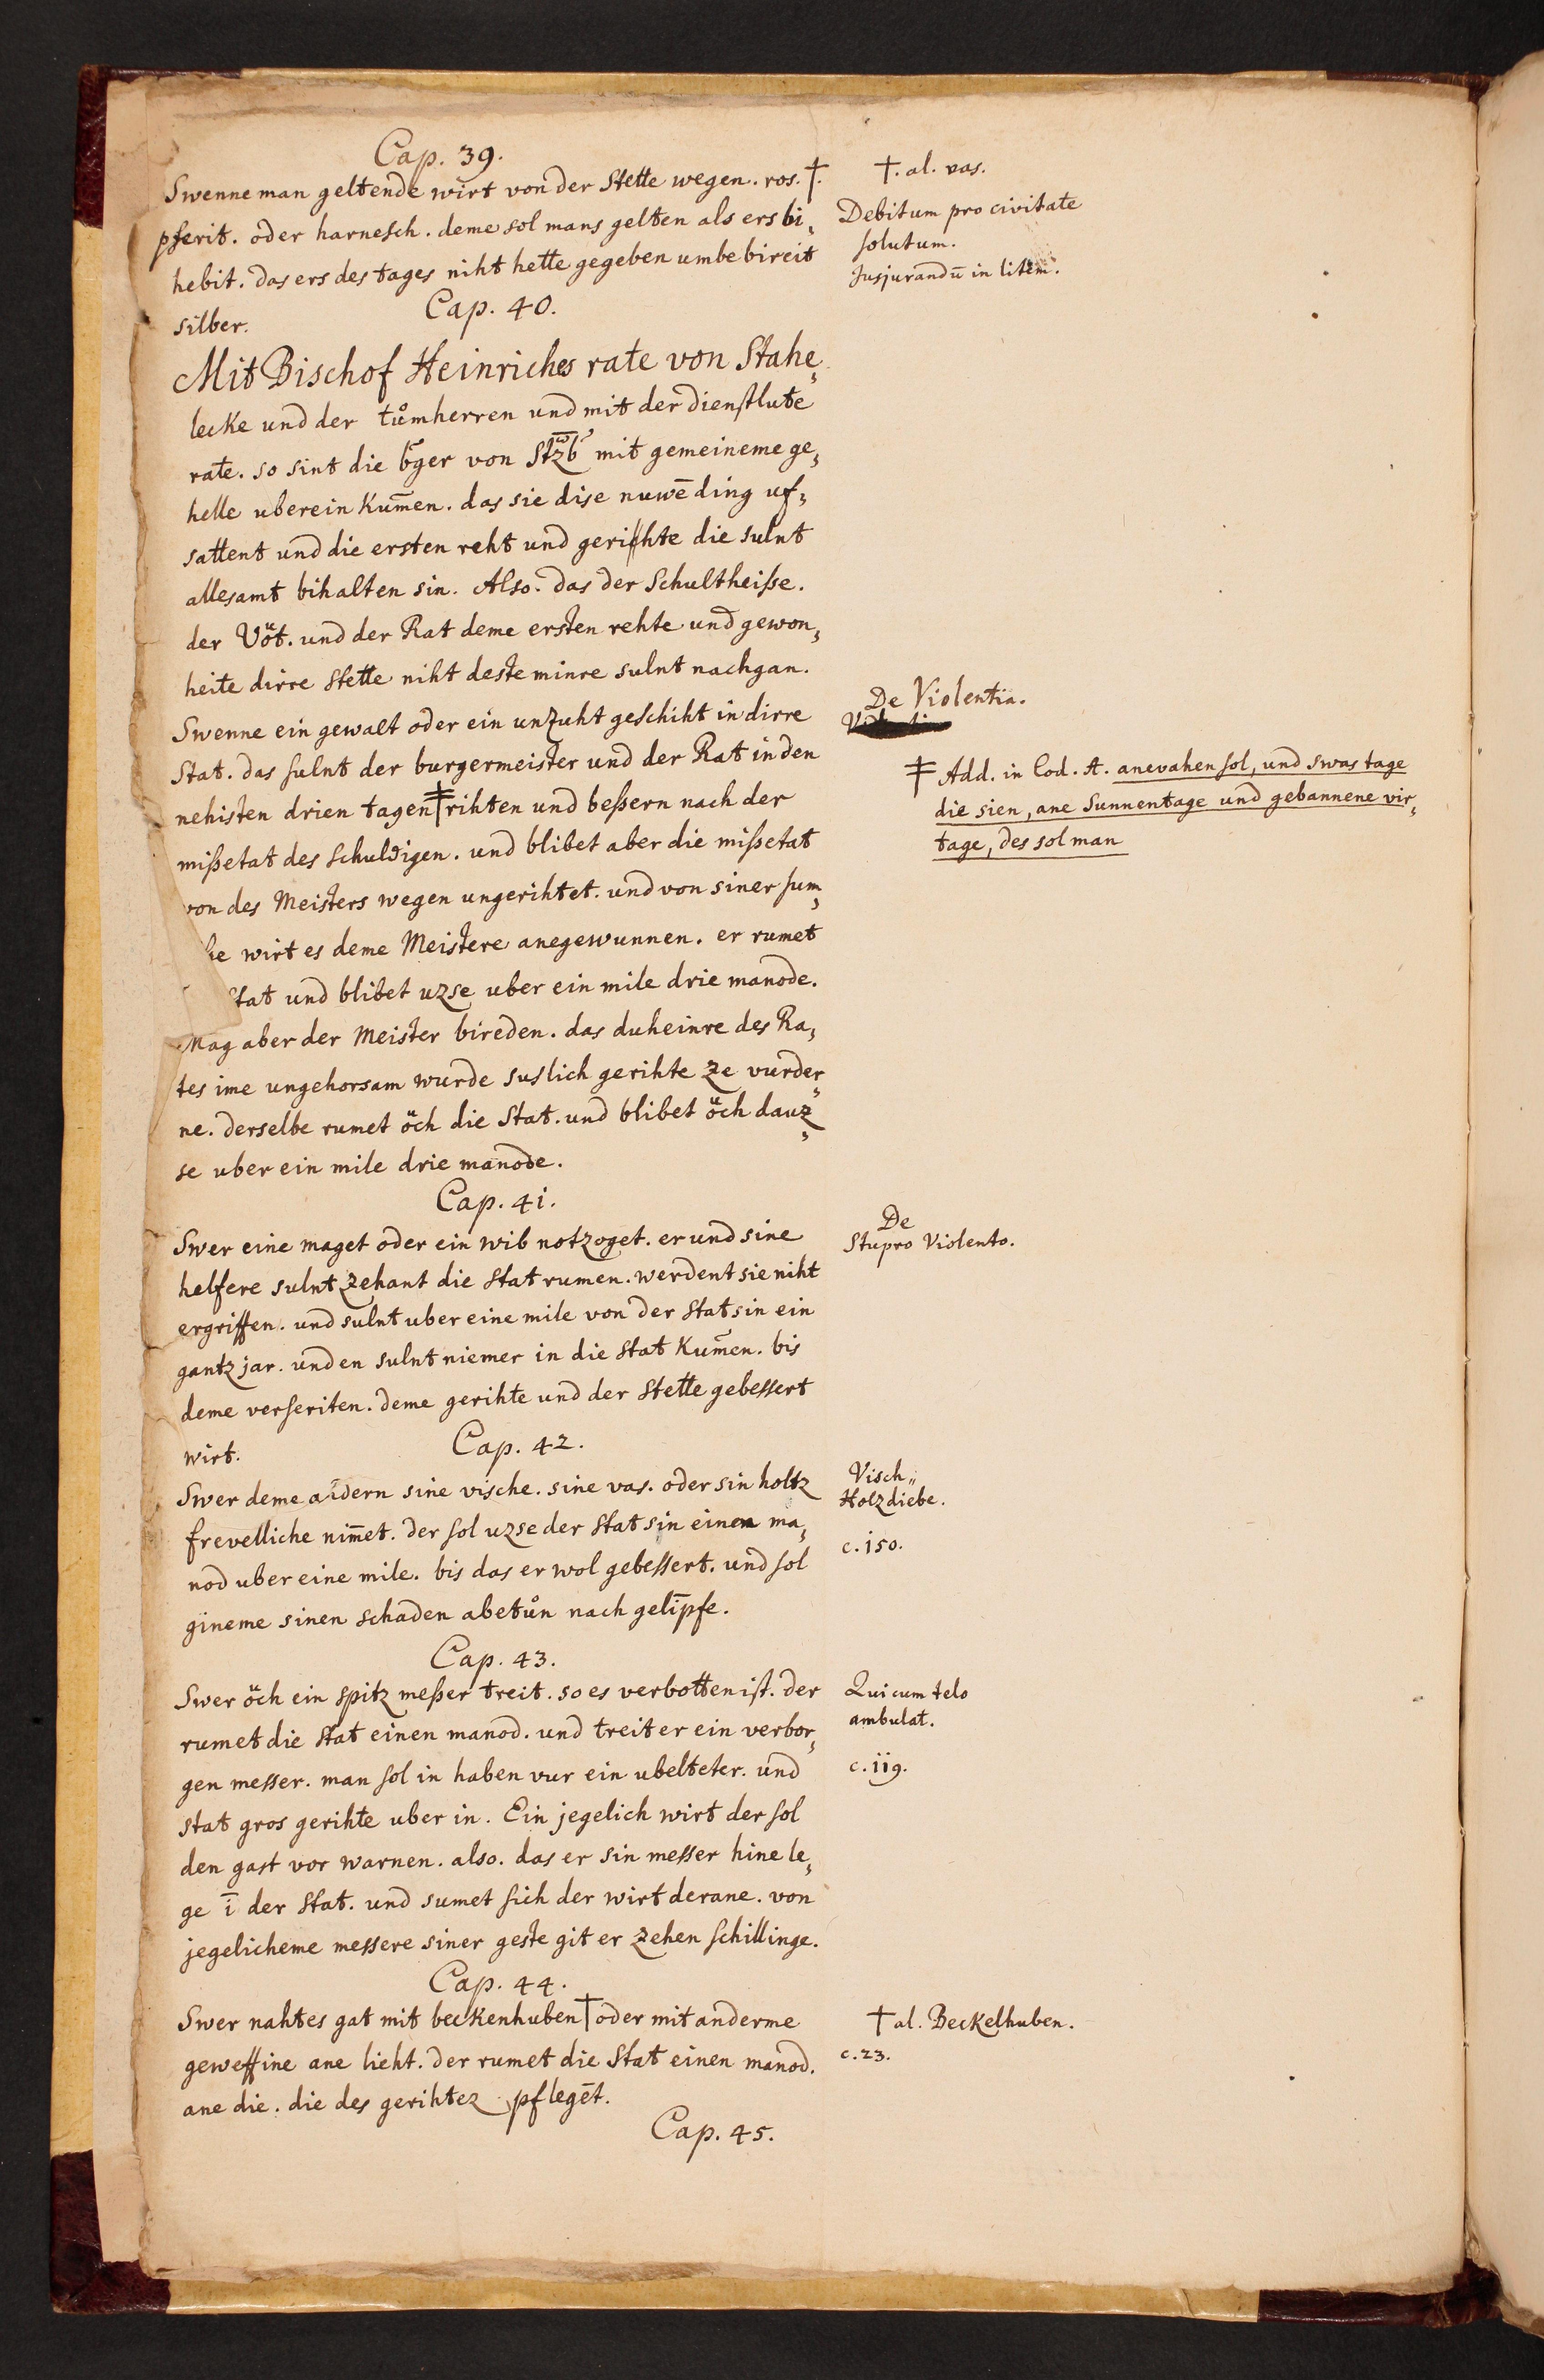 Cap. 39.
Swenne man geltende wirt von der Stette wegen. ros. †.
pferit. oder harnesch. deme sol mans gelten als ers bi„
hebit. das ers des tages niht hette gegeben umbe bireit
silber.
†. al. vas.
Debitum pro civitate
solutum.
Jusjurandū in litem.
Cap. 40.
Mit Bischof Heinriches rate von Stahe„
lecke und der tůmherren und mit der dienstlute
rate. so sint die b̄ger von Stzb mit gemeineme ge„
helle uberein kum̄en. das sie dise nuwē ding uf„
sattent und die ersten reht und gerichte die sulnt
allesamt bihalten sin. Also. das der Schultheiße.
der Vöt. und der Rat deme ersten rehte und gewon„
heite dirre Stette niht deste minre sulnt nachgan.
Swenne ein gewalt oder ein unzuht geschiht in dirre
Stat. das sulnt der burgermeister und der Rat in den
nehisten drien tagen ‡ rihten und beßern nach der
mißetat des schuldigen. und blibet aber die mißetat
von des Meisters wegen ungerihtet. und von siner sum„
he wirt es deme Meistere anegewunnen. er rumet
Stat und blibet uzse uber ein mile drie manode.
Mag aber der Meister bireden. das duheinre des Ra„
tes ime ungehorsam wurde suslich gerihte ze vurder„
ne. derselbe rumet öch die Stat. und blibet öch dauz„
se uber ein mile drie manode.
De Violentia.
‡ Add. in Cod. A. anevahen sol, und swas tage
die sien, ane Sunnentage und gebannene vir„
tage, des sol man
Cap. 41.
Swer eine maget oder ein wib notzoget. er und sine
helfere sulnt zehant die Stat rumen. werdent sie niht
ergriffen. und sulnt uber eine mile von der Stat sin ein
gantz jar. und en sulnt niemer in die Stat kum̄en. bis
deme verseriten. deme gerihte und der Stette gebessert
wirt.
De
Stupro Violento.
Cap. 42.
Swer deme andern sine vische. sine vas. oder sin holtz
frevelliche nim̄et. der sol uzse der Stat sin einen ma„
nod uber eine mile. bis das er wol gebessert. und sol
gineme sinen schaden abetůn nach gelīpfe.
Visch„
Holzdiebe.
c. 150.
Cap. 43.
Swer öch ein spitz meßer treit. so es verbotten ist. der
rumet die Stat einen manod. und treit er ein verbor„
gen messer. man sol in haben vur ein ubelteter. und
stat gros gerihte uber in. Ein jegelich wirt der sol
den gast vor warnen. also. das er sin messer hine le„
ge ī der Stat. und sumet sich der wirt derane. von
jegelicheme messere siner geste git er zehen schillinge.
Qui cum telo
ambulat.
c. 119.
Cap. 44.
Swer nahtes gat mit beckenhuben † oder mit anderme
geweffine ane lieht. der rumet die Stat einen manod.
ane die. die des gerihtez pflegēt.
† al. Beckelhuben.
c. 23.
Cap. 45.